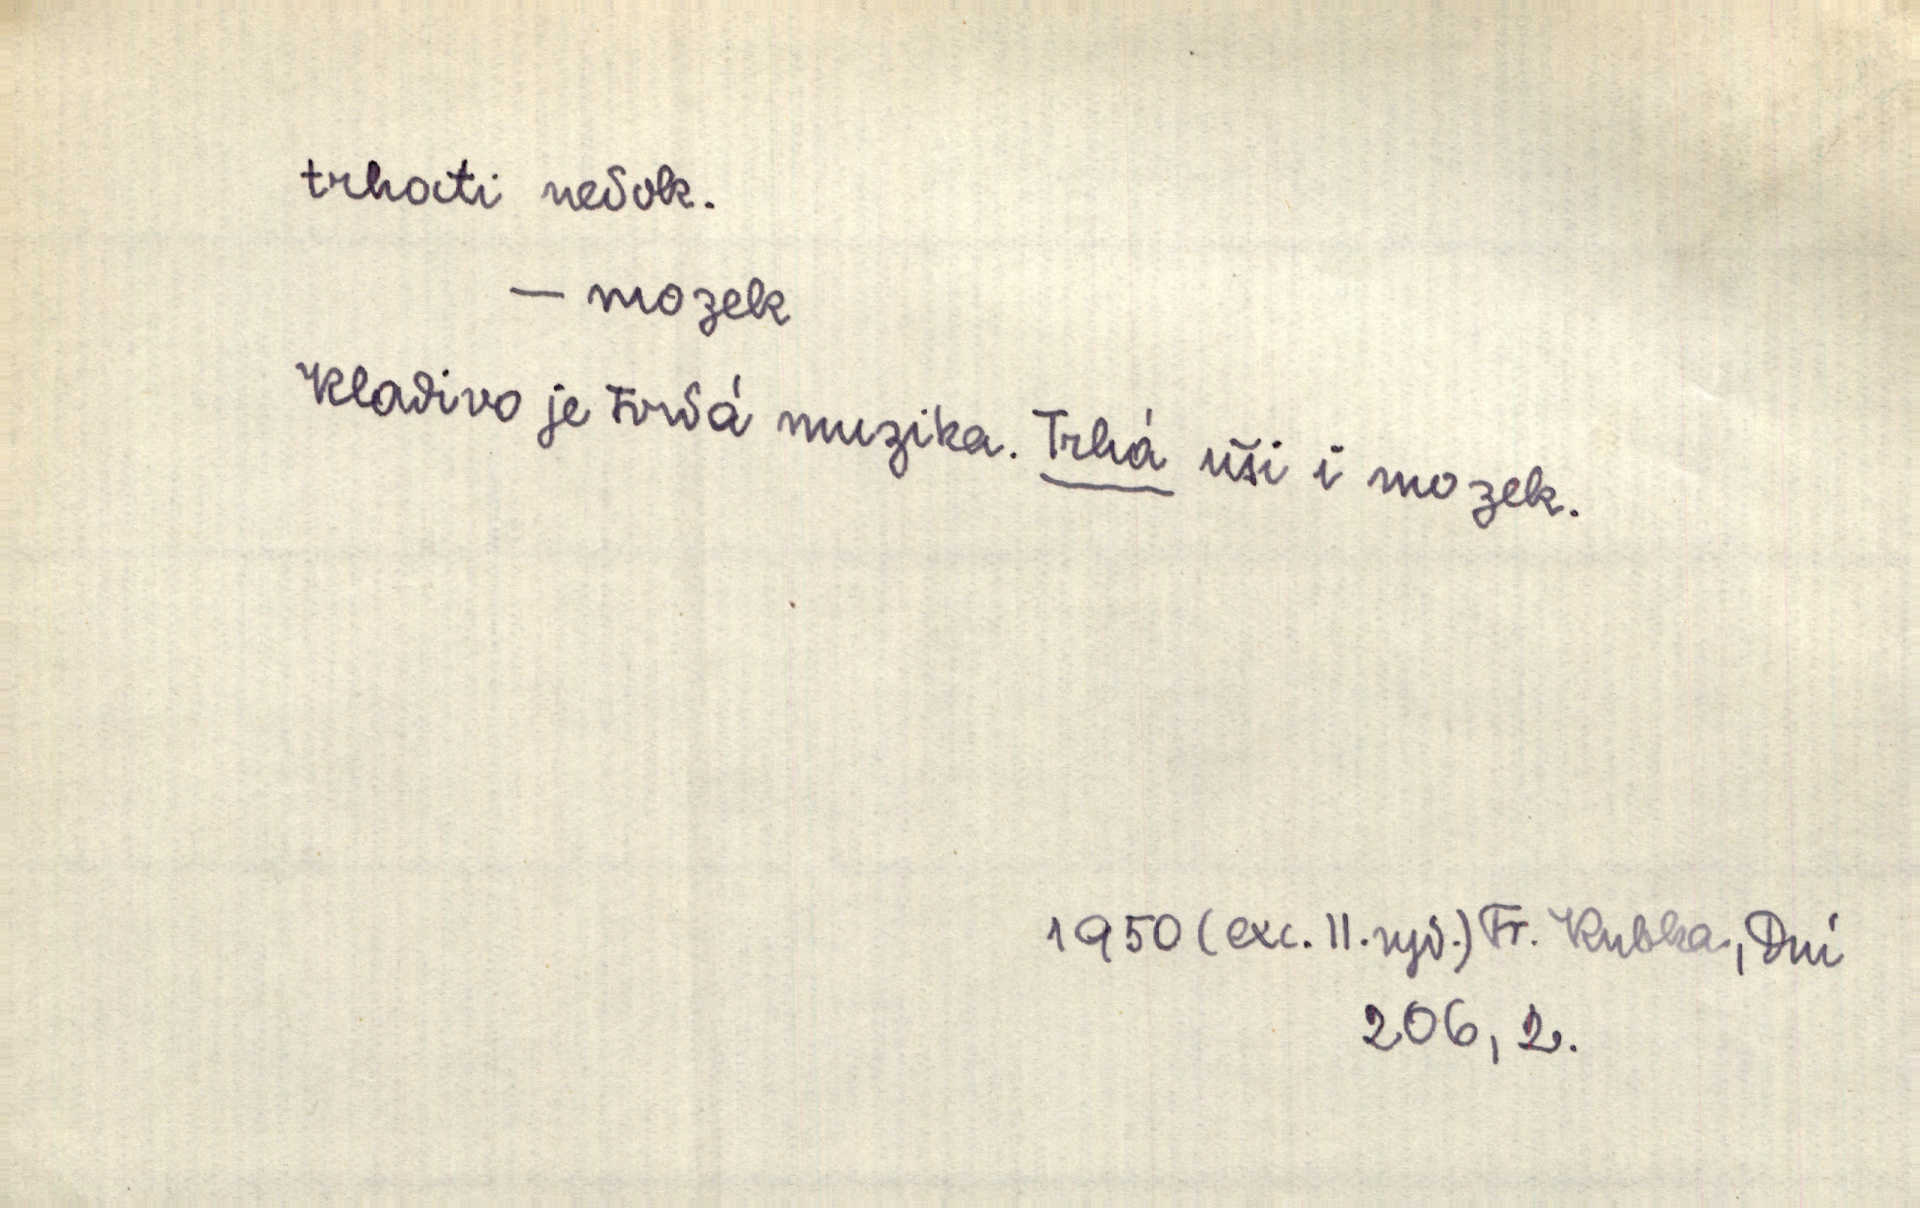 trhati nedok.
— mozek
Kladivo je tvrdá muzika. Trhá uši i mozek.
1950 (exc. II. vyd.) Fr. Kubka, Dni
206, 2.